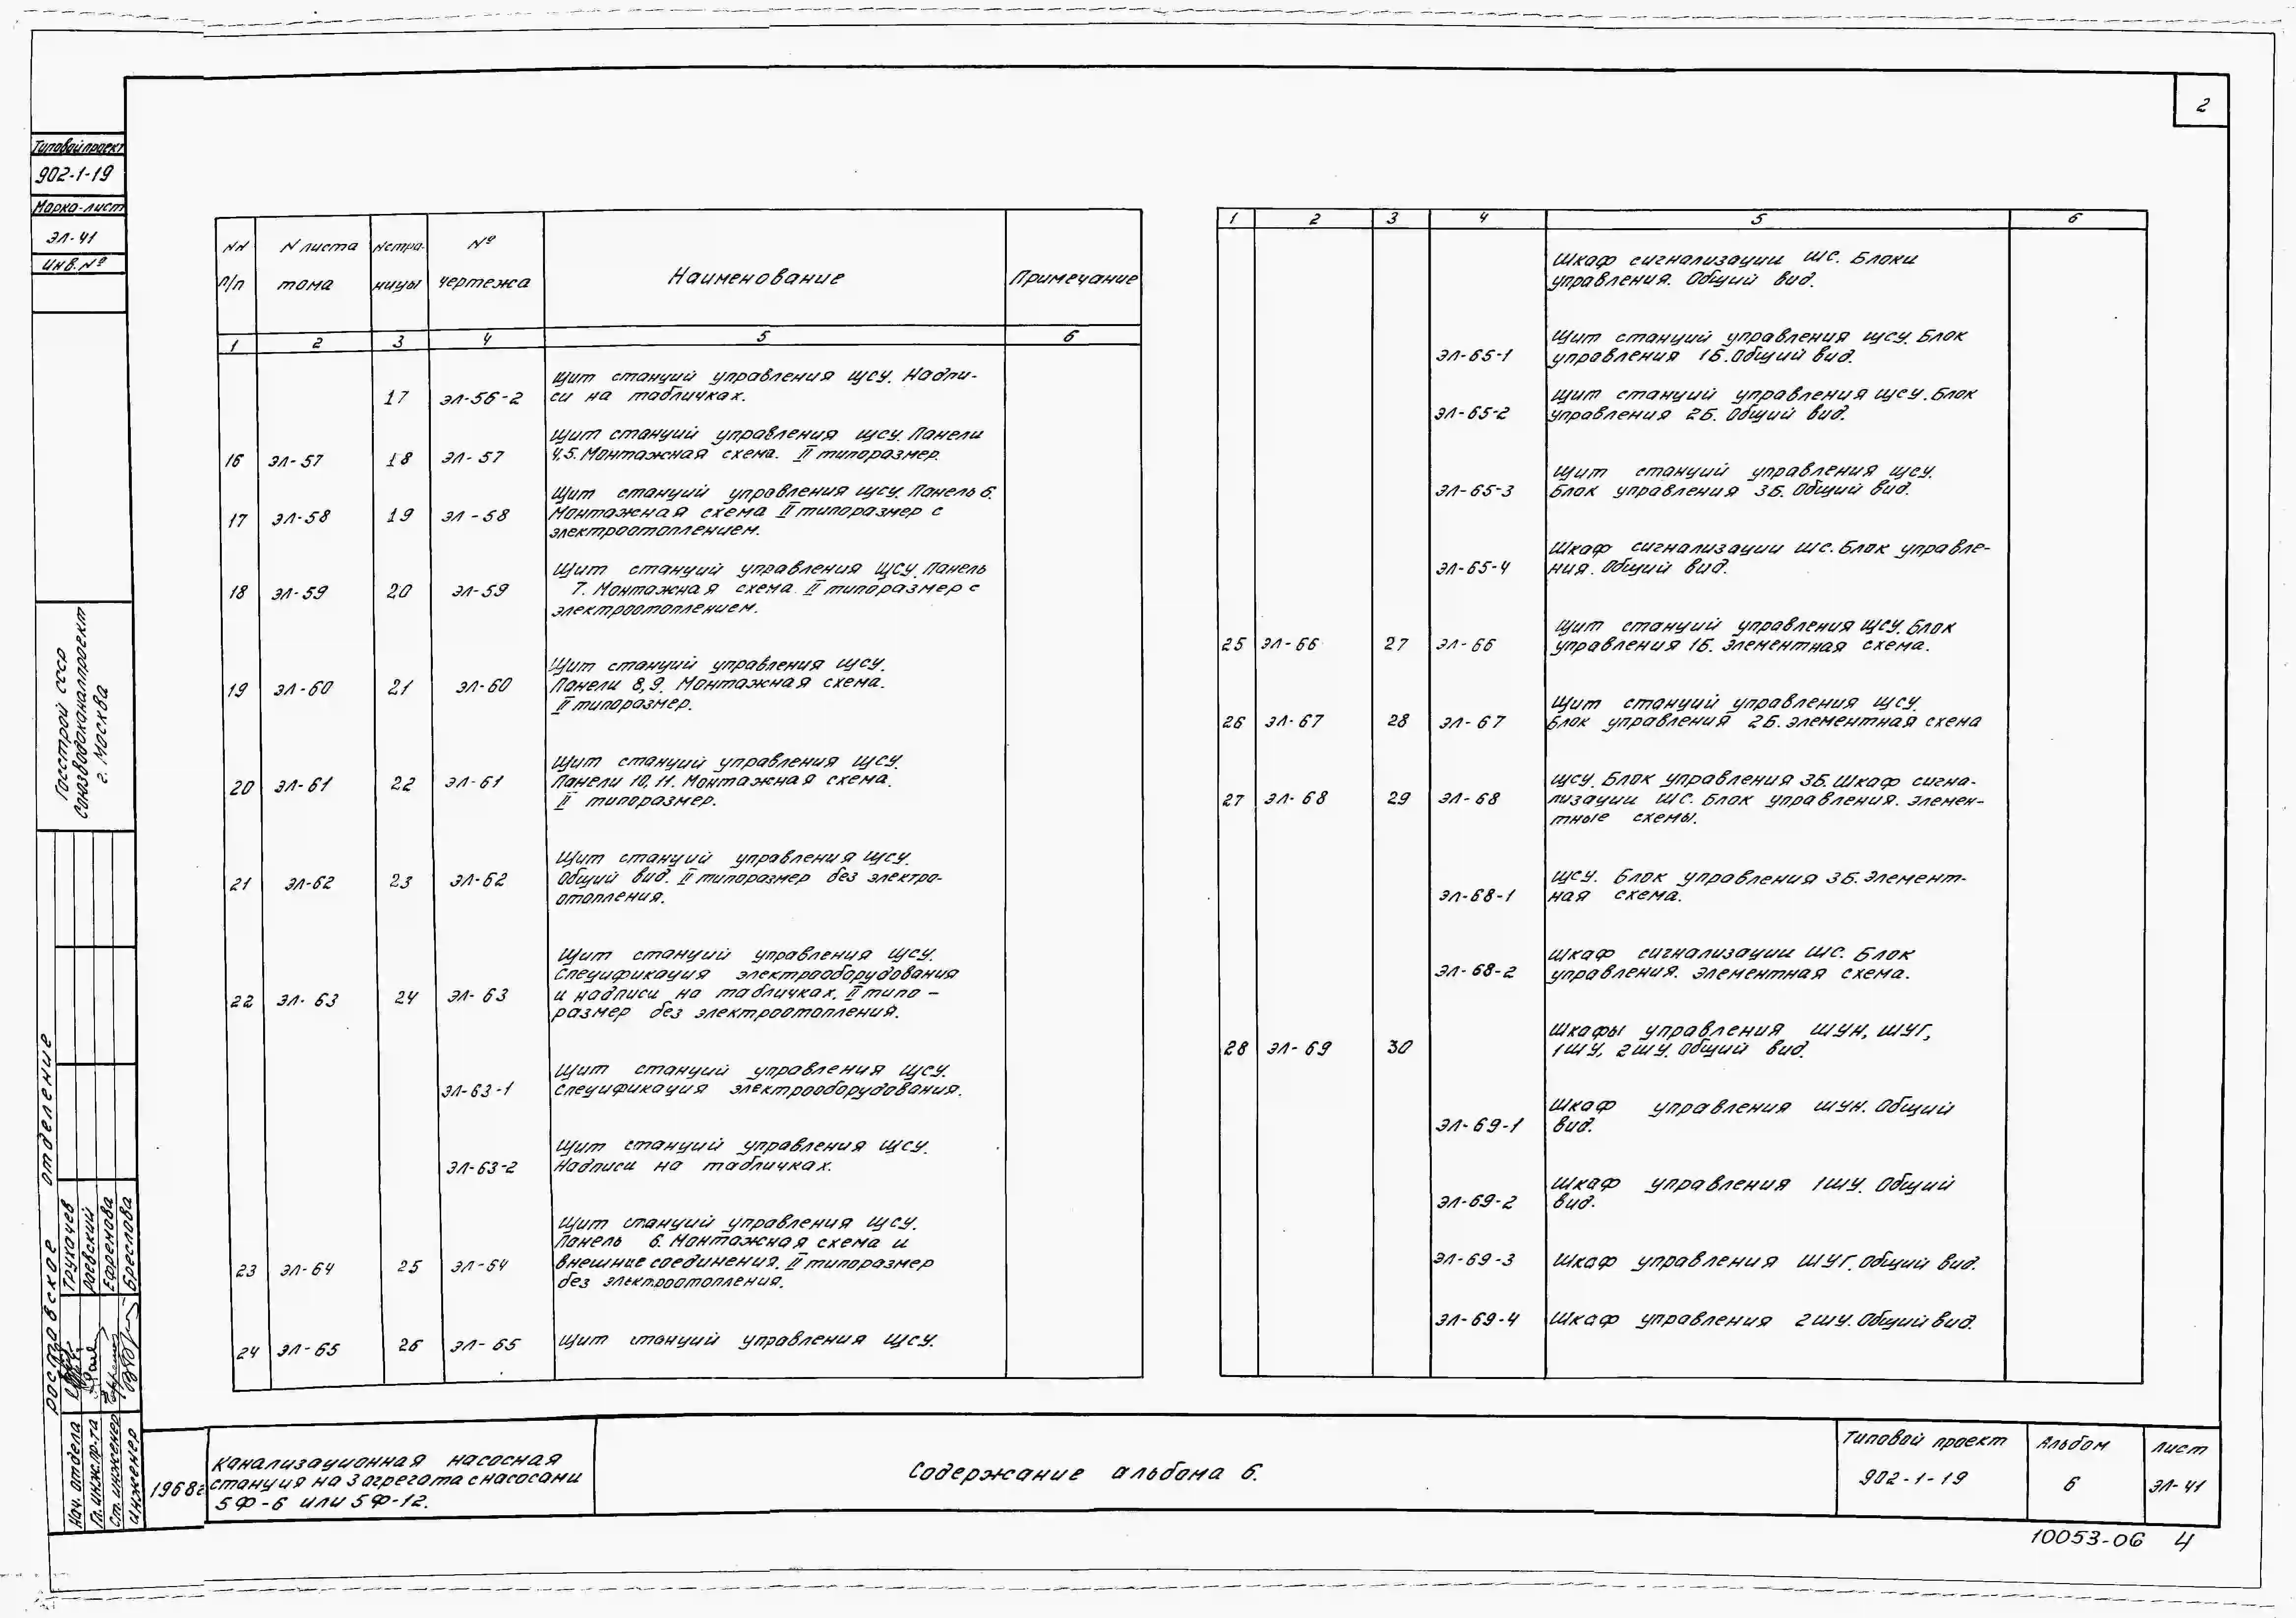 2
Типовой проект
902-1-19
Марка-лист
ЭЛ-41
Инв.№
Госстрой СССР
Союзводоканалпроект
г. Москва
Ростовское отделение
Нач. отдела Трукачев
Гл.инж.пр-та Раевский
Ст. инженер Ефременова
Инженер Бреслова
NN п/п
N листа тома
N страницы
№ чертежа
Наименование
Примечание
1 2 3 4 5 6
17 ЭЛ-56-2 Щит станций управления ЩСУ. Надпи-
си на табличках.
16 ЭЛ-57 18 ЭЛ-57 Щит станций управления ЩСУ. Панели
4,5. Монтажная схема. II типоразмер.
17 ЭЛ-58 19 ЭЛ-58 Щит станций управления ЩСУ. Панель 6.
Монтажная схема II типоразмер с
электроотоплением.
18 ЭЛ-59 20 ЭЛ-59 Щит станций управления ЩСУ. Панель
7. Монтажная схема. II типоразмер с
электроотоплением.
19 ЭЛ-60 21 ЭЛ-60 Щит станций управления ЩСУ.
Панели 8,9. Монтажная схема.
II типоразмер.
20 ЭЛ-61 22 ЭЛ-61 Щит станций управления ЩСУ.
Панели 10,11. Монтажная схема.
II типоразмер.
21 ЭЛ-62 23 ЭЛ-62 Щит станций управления ЩСУ.
Общий вид. II типоразмер без электро-
отопления.
22 ЭЛ-63 24 ЭЛ-63 Щит станций управления ЩСУ.
Спецификация электрооборудования
и надписи на табличках. II типо-
размер без электроотопления.
ЭЛ-63-1 Щит станций управления ЩСУ.
Спецификация электрооборудования.
ЭЛ-63-2 Щит станций управления ЩСУ.
Надписи на табличках.
23 ЭЛ-64 25 ЭЛ-64 Щит станций управления ЩСУ.
Панель 6. Монтажная схема и
внешние соединения. II типоразмер
без электроотопления.
24 ЭЛ-65 26 ЭЛ-65 Щит станций управления ЩСУ.
1 2 3 4 5 6
Шкаф сигнализации ШС. Блоки
управления. Общий вид.
ЭЛ-65-1 Щит станций управления ЩСУ. Блок
управления 1Б. Общий вид.
ЭЛ-65-2 Щит станций управления ЩСУ. Блок
управления 2Б. Общий вид.
ЭЛ-65-3 Щит станций управления ЩСУ.
Блок управления 3Б. Общий вид.
ЭЛ-65-4 Шкаф сигнализации ШС. Блок управле-
ния. Общий вид.
25 ЭЛ-66 27 ЭЛ-66 Щит станций управления ЩСУ. Блок
управления 1Б. Элементная схема.
26 ЭЛ-67 28 ЭЛ-67 Щит станций управления ЩСУ.
Блок управления 2Б. Элементная схема
27 ЭЛ-68 29 ЭЛ-68 ЩСУ. Блок управления 3Б. Шкаф сигна-
лизации ШС. Блок управления. Элемен-
тные схемы.
ЭЛ-68-1 ЩСУ. Блок управления 3Б. Элемент-
ная схема.
ЭЛ-68-2 Шкаф сигнализации ШС. Блок
управления. Элементная схема.
28 ЭЛ-69 30 Шкафы управления ШУН, ШУГ,
1ШУ, 2ШУ. Общий вид.
ЭЛ-69-1 Шкаф управления ШУН. Общий
вид.
ЭЛ-69-2 Шкаф управления 1ШУ. Общий
вид.
ЭЛ-69-3 Шкаф управления ШУГ. Общий вид.
ЭЛ-69-4 Шкаф управления 2ШУ. Общий вид.
1968г
Канализационная насосная
станция на 3 агрегата с насосами
5Ф-6 или 5Ф-12.
Содержание альбома 6.
Типовой проект
902-1-19
Альбом
6
Лист
ЭЛ-41
10053-06 4